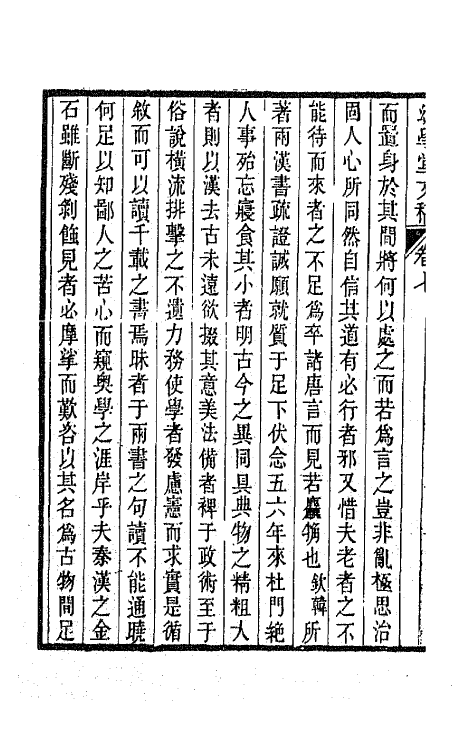 學堂文稿 卷七
而置身於其間將何以處之而若爲言之豈非亂極思治
固人心所同然自信其道有必行者邪又惜夫老者之不
能待而來者之不足爲卒諸唐言而見若 也欽韓所
著兩漢書疏證誠願就質于足下伏念五六年來杜門絶
人事殆忘寢食其小者明古今之異同具典物之精粗大
者則以漢去古未遠欲掇其意美法備者裨于政術至于
俗說橫流排擊之不遺力務使學者發慮憲而求實是循
敘而可以讀千載之書焉昧者于兩書之句讀不能通曉
何足以知鄙人之苦心而窺奥學之涯岸乎夫秦漢之金
石雖斷殘剝蝕見者必摩挲而歎咨以其名爲古物間足